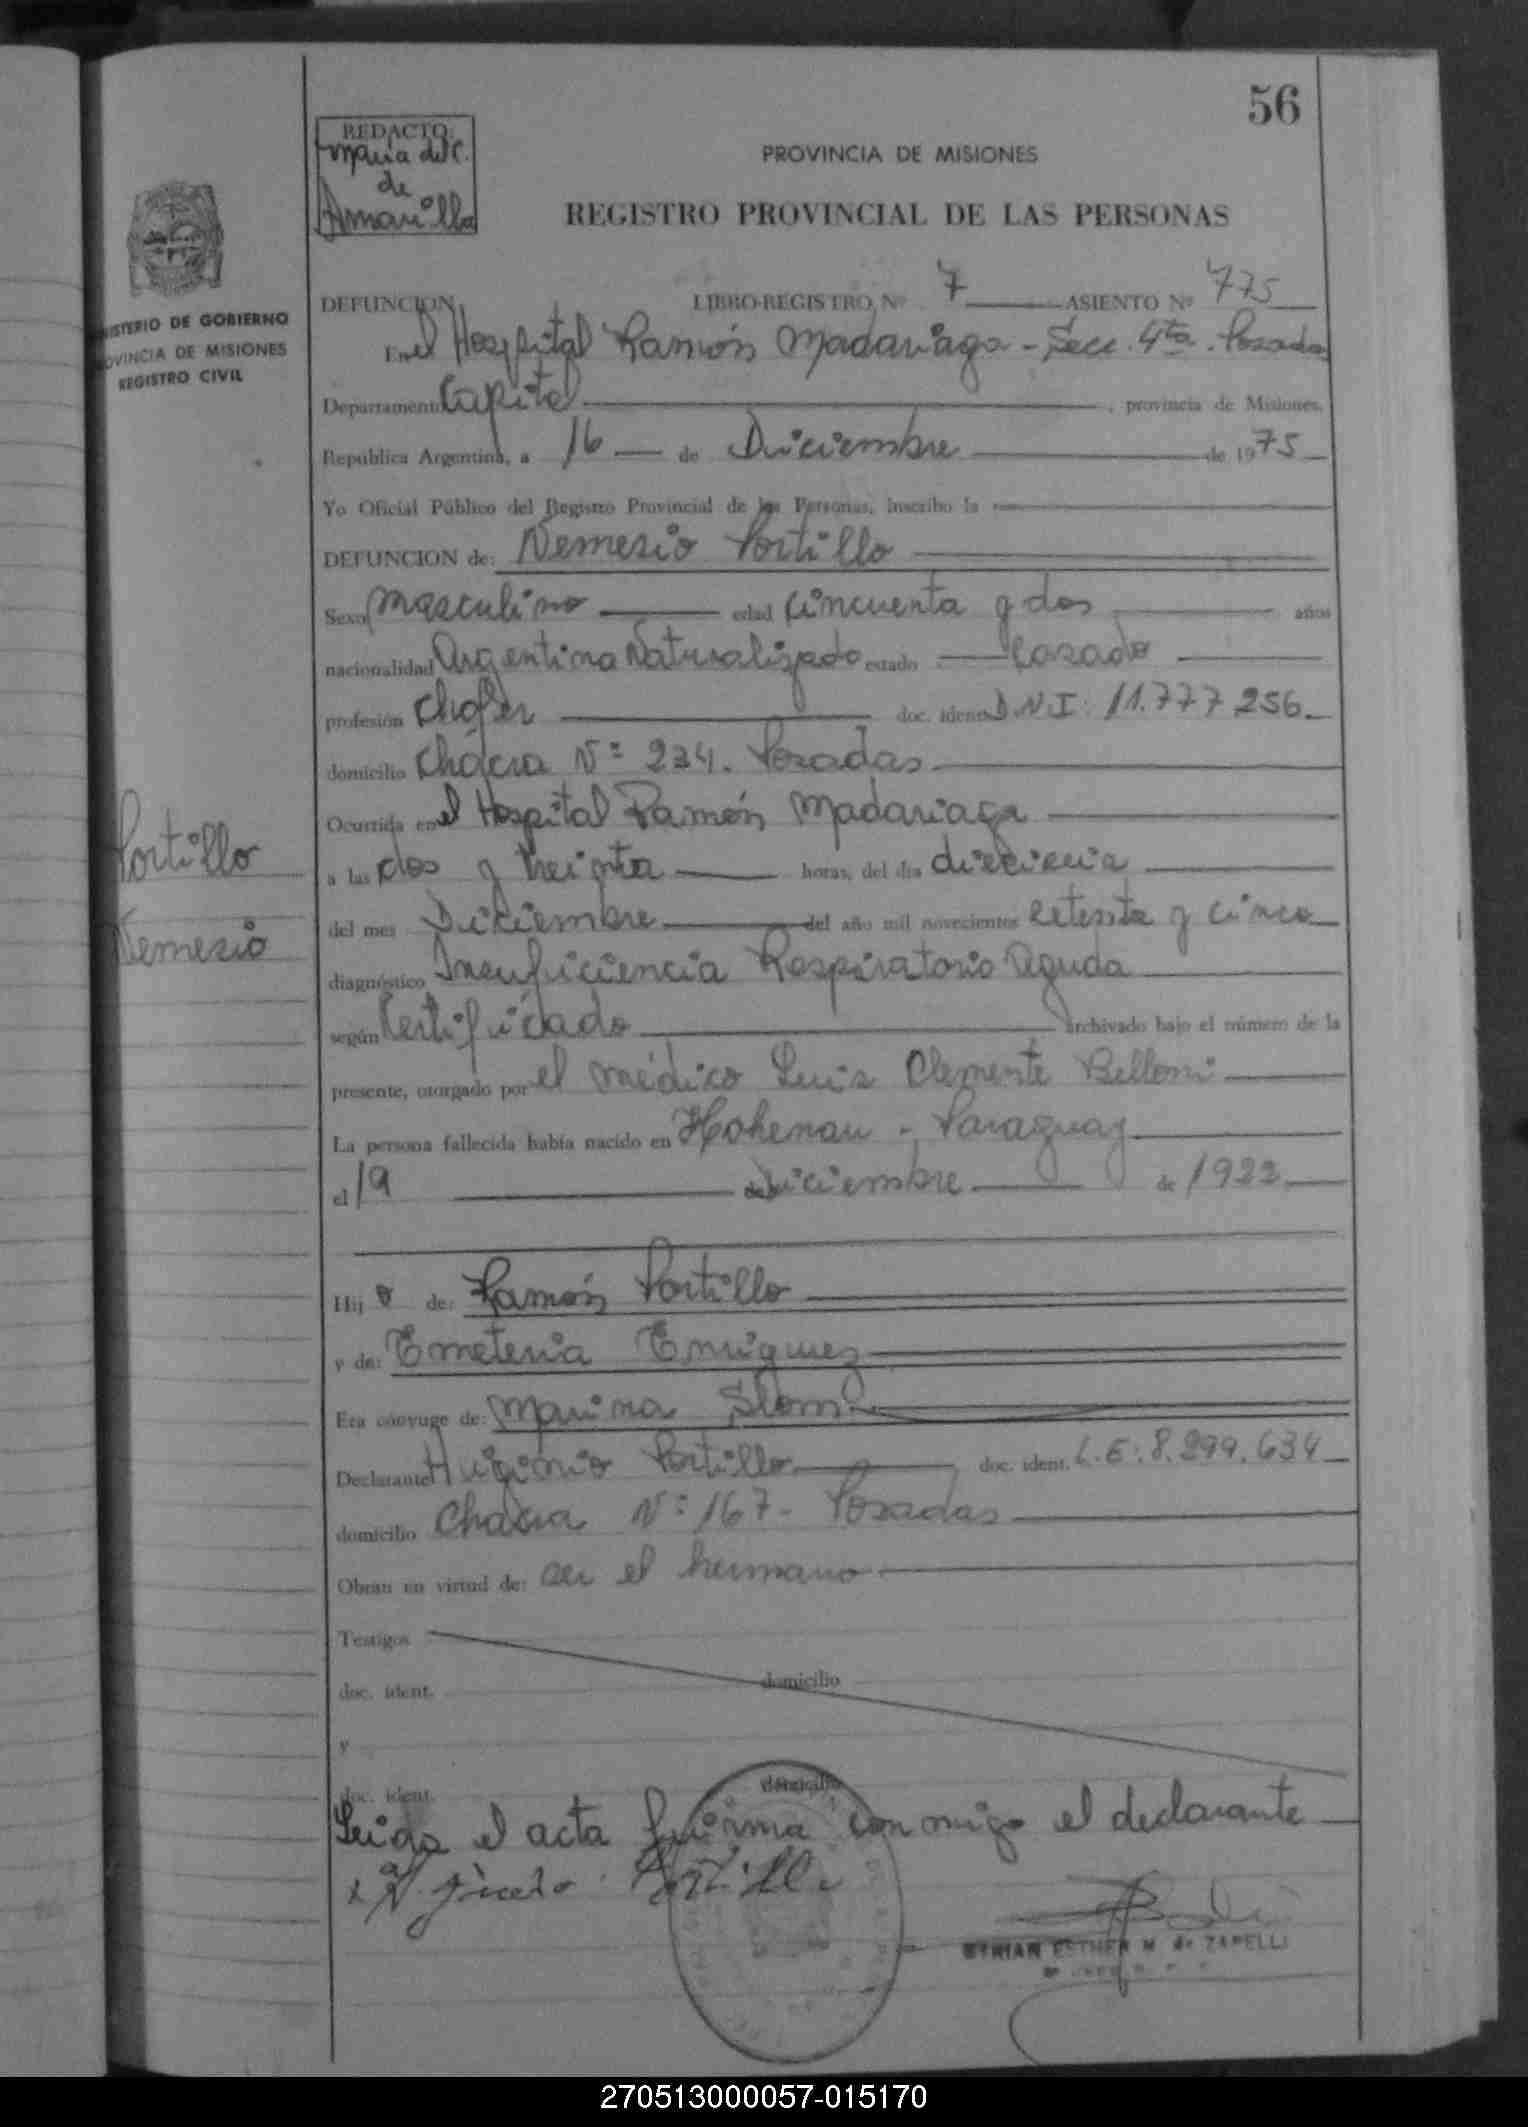 56
REDACTO:
Maria del C.
de
Amarilla
PROVINCIA DE MISIONES
REGISTRO PROVINCIAL DE LAS PERSONAS
MINISTERIO DE GOBIERNO
PROVINCIA DE MISIONES
REGISTRO CIVIL
DEFUNCION LIBRO-REGISTRO Nº 7 ASIENTO Nº 775
En el Hospital Ramón Madariaga - Secc. 4ta. Posadas
Departamento Capital, provincia de Misiones,
República Argentina, a 16 de Diciembre de 1975
Yo Oficial Público del Registro Provincial de las Personas, inscribo la
DEFUNCION de: Nemesio Portillo
Sexo masculino edad cincuenta y dos años
nacionalidad Argentina Naturalizado estado Casado
profesión chofer doc. ident. D.N.I: 11.777.256
domicilio Chacra Nº 234. Posadas
Ocurrida en el Hospital Ramón Madariaga
a las dos y treinta horas, del día dieciseis
del mes Diciembre del año mil novecientos setenta y cinco
diagnóstico Insuficiencia Respiratorio Aguda
según Certificado archivado bajo el número de la
presente, otorgado por el médico Luis Clemente Belloni
La persona fallecida había nacido en Hohenau - Paraguay
el 19 de Diciembre de 1922
Hijo de: Ramón Portillo
y de: Emeteria Enriquez
Era cónyuge de: Marina Slom
Declarante Huginio Portillo doc. ident. L.E: 8.299.634
domicilio Chacra Nº 167 - Posadas
Obran en virtud de: ser el hermano
Testigos
doc. ident. domicilio
y
doc. ident. domicilio
Leida el acta firma conmigo el declarante
Portillo
MIRIAN ESTHER M. de ZAPELLI
Portillo
Nemesio
270513000057-015170